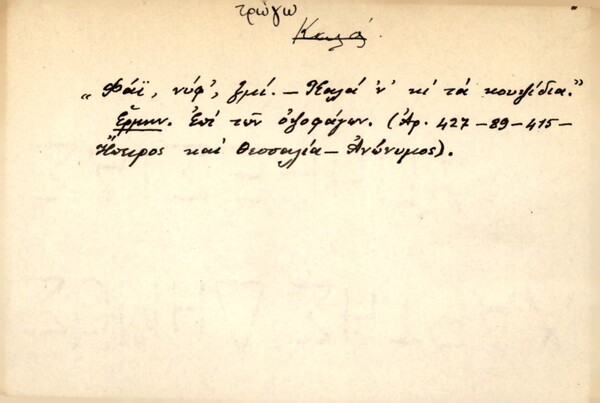 τρώγω
Καλά.
„Φάϊ, νύφ', ζμί. – Καλά 'ν' κὶ τὰ κουψίδια."
Ἑρμην. Ἐπὶ τῶν ὀψοφάγων. (Ἀρ. 427–89–415–
Ἤπειρος καὶ Θεσσαλία – Ἀνώνυμος).